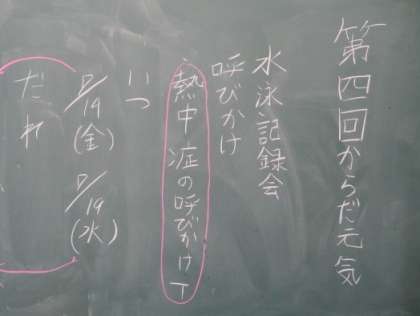 第四回からだ元気
水泳記録会
呼びかけ
熱中症の呼びかけT
いつ
(金)
(水)
だれ